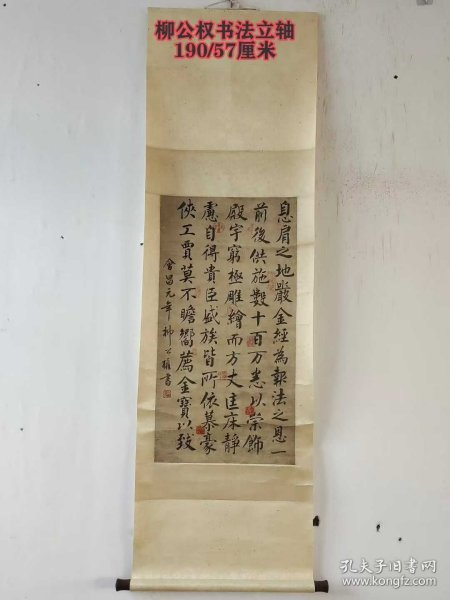 柳公权书法立轴
190/57厘米
息肩之地嚴金經為報法之恩一
前後供施數十百万悉以崇飾
殿宇窮極雕繪而方丈匡床靜
慮自得貴臣盛族皆所依慕豪
俠工賈莫不瞻嚮薦金寶以致
會昌元年柳公權書
孔夫子旧书网
www.kongfz.com